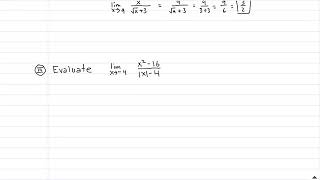 lim x→9 x/√x+3 = 9/√x+3 = 9/3+3 = 9/6 = 3/2
II Evaluate lim x→-4 x²-16/|x|-4